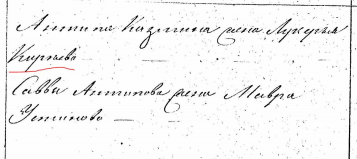 Антипа Казмина жена Лукерья
Карпова — —
Саввы Антипова жена Мавра
Устинова — —